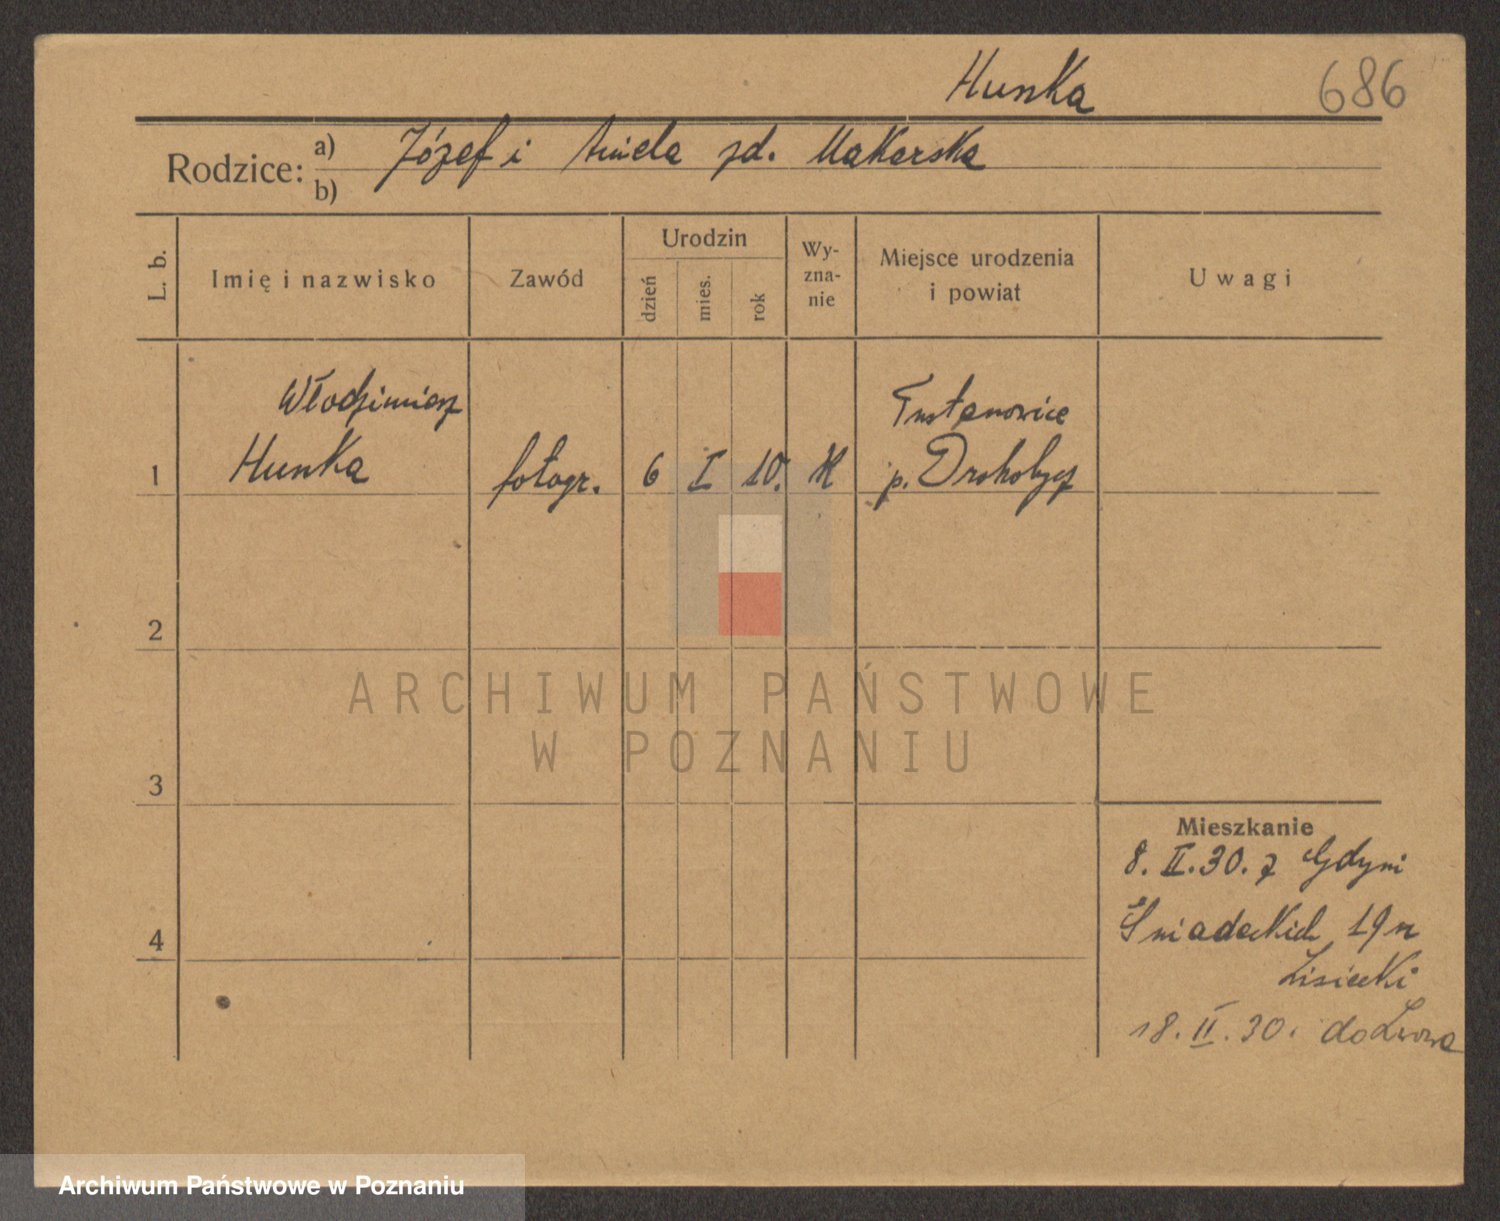 Hunka 686
Rodzice: a) Józef i Aniela zd. Makarska
b)
L. b.
Imię i nazwisko
Zawód
Urodzin
dzień
mies.
rok
Wy-
zna-
nie
Miejsce urodzenia
i powiat
Uwagi
Włodzimierz Tustanowice
1 Hunka fotogr. 6 I 10. p. Drohobycz
2
ARCHIWUM PAŃSTWOWE
W POZNANIU
3
Mieszkanie
8. II. 30. z Gdyni
4 Śniadeckich 19
Lisiecki
18. II. 30. do Lwowa
Archiwum Państwowe w Poznaniu